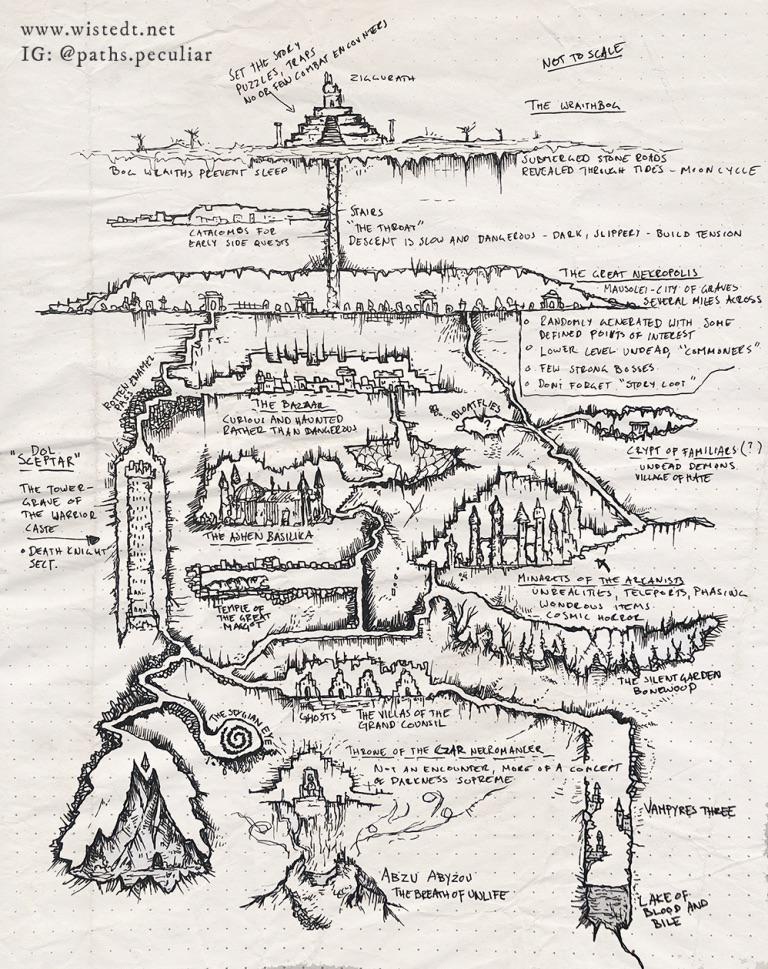 www.wistedt.net
IG: @paths.peculiar
NOT TO SCALE
SET THE STORY
PUZZLES, TRAPS
NO OR FEW COMBAT ENCOUNTERS
ZIGGURATH
THE WRAITHBOG
BOG WRAITHS PREVENT SLEEP
SUBMERGED STONE ROADS
REVEALED THROUGH TIDES - MOONCYCLE
CATACOMBS FOR
EARLY SIDE QUESTS
STAIRS
"THE THROAT"
DESCENT IS SLOW AND DANGEROUS - DARK, SLIPPERY - BUILD TENSION
THE GREAT NEKROPOLIS
MAUSOLEI-CITY OF GRAVES
SEVERAL MILES ACROSS
○ RANDOMLY GENERATED WITH SOME
DEFINED POINTS OF INTEREST
○ LOWER LEVEL UNDEAD, "COMMONERS"
○ FEW STRONG BOSSES
○ DONT FORGET "STORY LOOT"
ROTTEN ENAMEL
PASS
THE BAZAAR
CURIOUS AND HAUNTED
RATHER THAN DANGEROUS
BLOATFLIES
?
CRYPT OF FAMILIARS (?)
UNDEAD DEMONS.
VILLAGE OF HATE
"DOL
SCEPTAR"
THE TOWER-
GRAVE OF
THE WARRIOR
CASTE
• DEATH KNIGHT
SECT.
THE ASHEN BASILIKA
MINARETS OF THE ARKANISTS
UNREALITIES, TELEPORTS, PHASING
WONDROUS ITEMS.
COSMIC HORROR
TEMPLE OF
THE GREAT
MAGGOT
THE SILENT GARDEN
BONEWOOD
GHOSTS
THE VILLAS OF THE
GRAND COUNSIL
THE STYGIAN EYE
THRONE OF THE CZAR NECROMANCER
NOT AN ENCOUNTER, MORE OF A CONCEPT
OF DARKNESS SUPREME
VAMPYRES THREE
ABZU ABYZOU
THE BREATH OF UNLIFE
LAKE OF
BLOOD AND
BILE